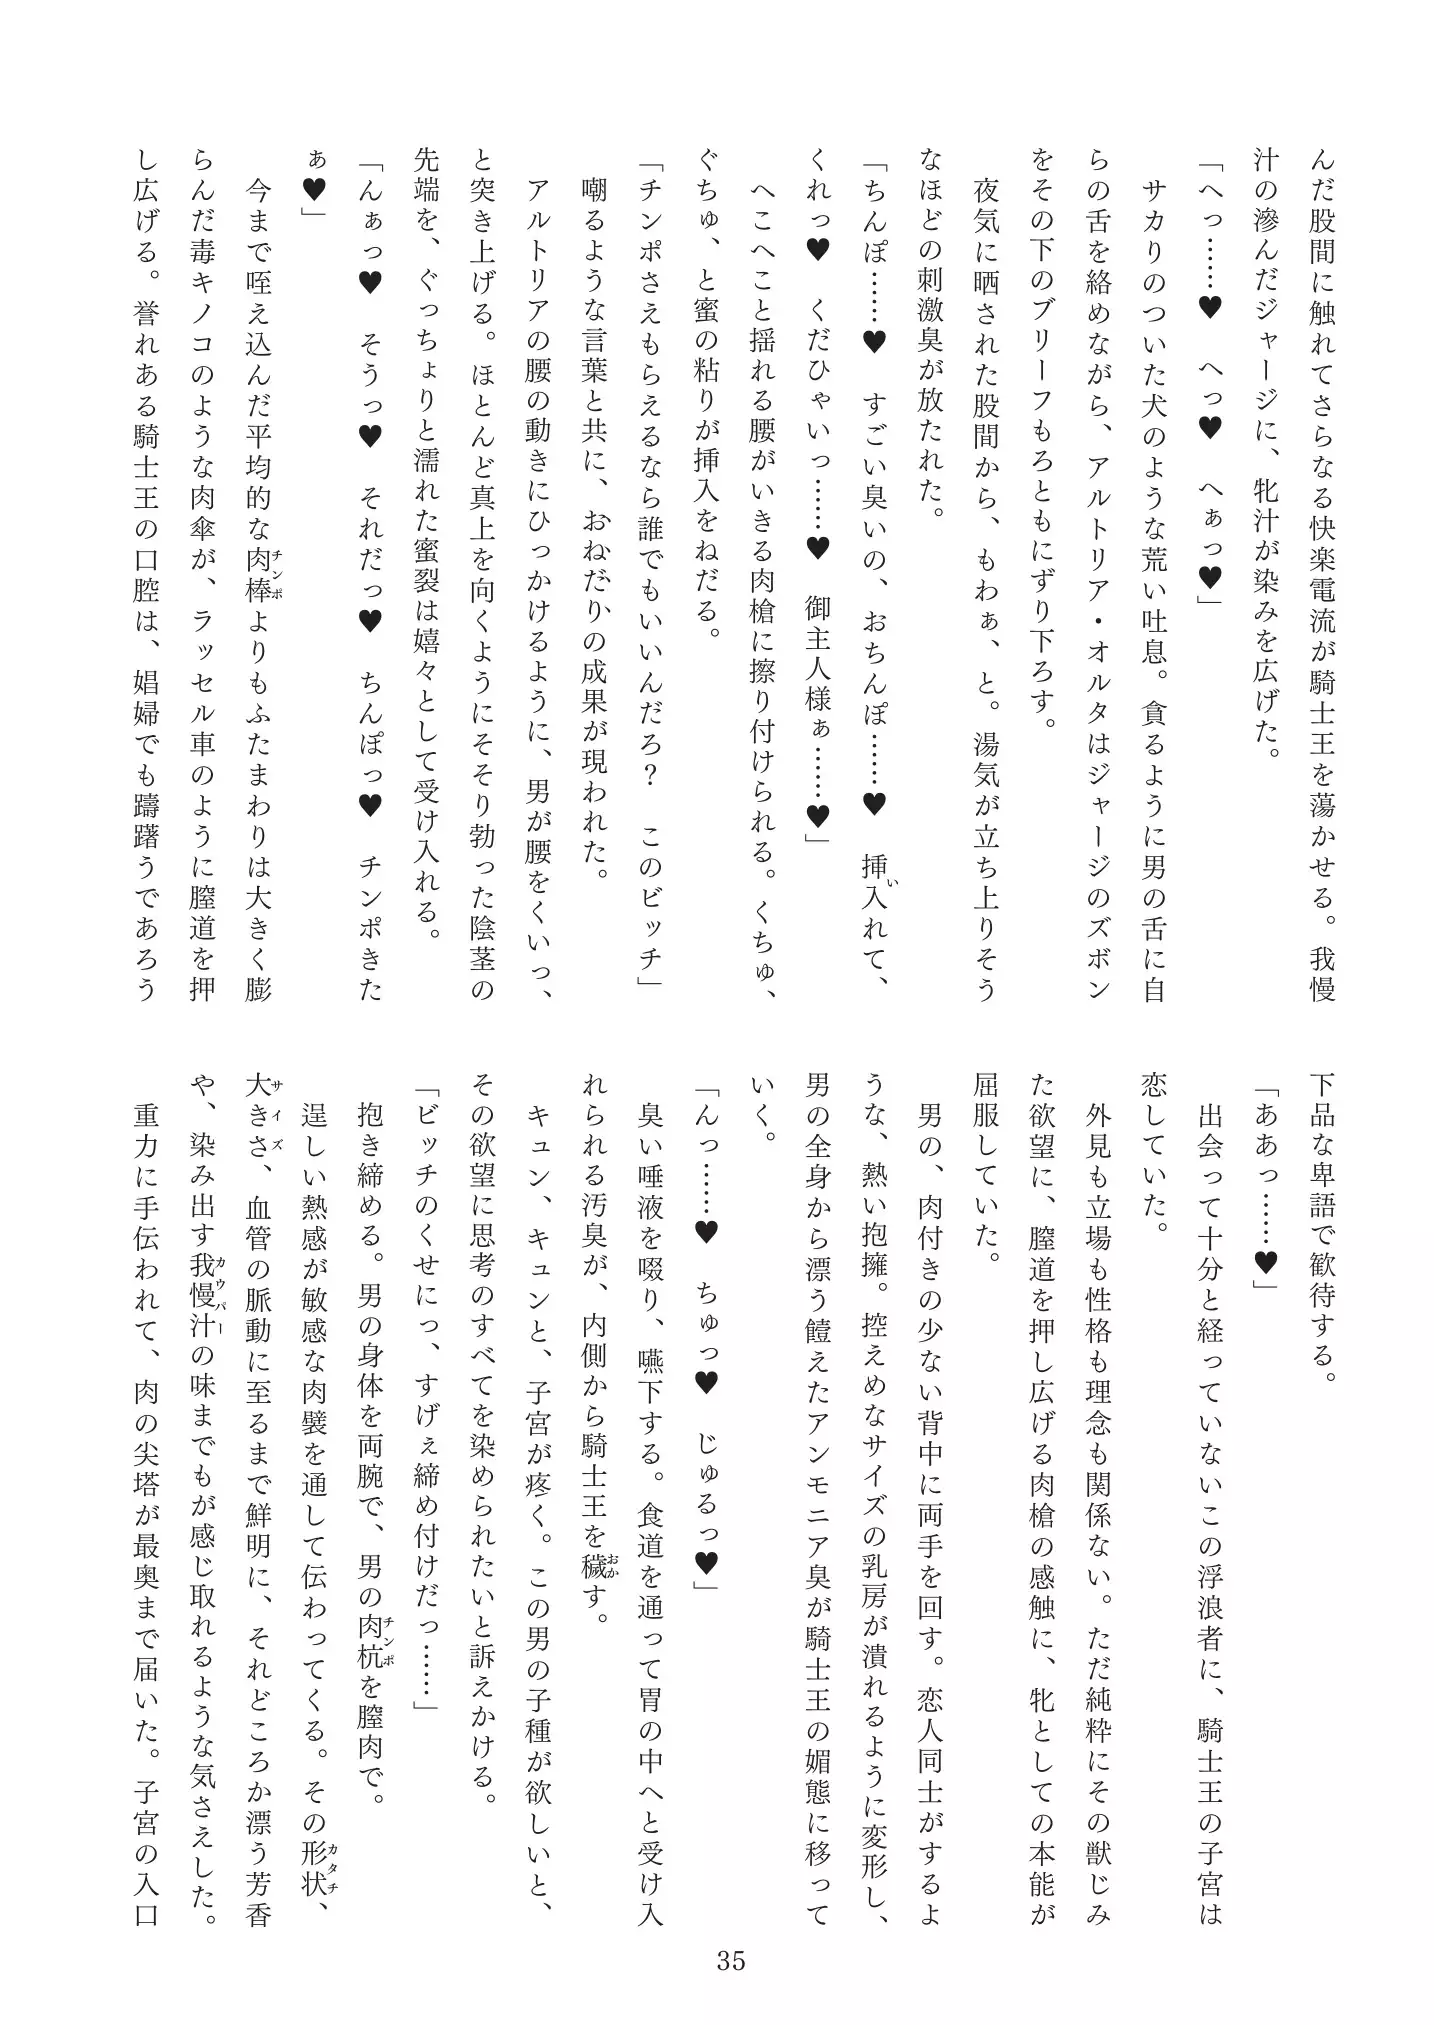 んだ股間に触れてさらなる快楽電流が騎士王を蕩かせる。我慢
汁の滲んだジャージに、牝汁が染みを広げた。
「へっ……♥　へっ♥　へぁっ♥」
　サカりのついた犬のような荒い吐息。貪るように男の舌に自
らの舌を絡めながら、アルトリア・オルタはジャージのズボン
をその下のブリーフもろともにずり下ろす。
　夜気に晒された股間から、もわぁ、と。湯気が立ち上りそう
なほどの刺激臭が放たれた。
「ちんぽ……♥　すごい臭いの、おちんぽ……♥　挿入れて、
くれっ♥　くだひゃいっ……♥　御主人様ぁ……♥」
　へこへこと揺れる腰がいきる肉槍に擦り付けられる。くちゅ、
ぐちゅ、と蜜の粘りが挿入をねだる。
「チンポさえもらえるなら誰でもいいんだろ？　このビッチ」
　嘲るような言葉と共に、おねだりの成果が現われた。
　アルトリアの腰の動きにひっかけるように、男が腰をくいっ、
と突き上げる。ほとんど真上を向くようにそそり勃った陰茎の
先端を、ぐっちょりと濡れた蜜裂は嬉々として受け入れる。
「んぁっ♥　そうっ♥　それだっ♥　ちんぽっ♥　チンポきた
ぁ♥」
　今まで咥え込んだ平均的な肉棒よりもふたまわりは大きく膨
らんだ毒キノコのような肉傘が、ラッセル車のように膣道を押
し広げる。誉れある騎士王の口腔は、娼婦でも躊躇うであろう
下品な卑語で歓待する。
「ああっ……♥」
　出会って十分と経っていないこの浮浪者に、騎士王の子宮は
恋していた。
　外見も立場も性格も理念も関係ない。ただ純粋にその獣じみ
た欲望に、膣道を押し広げる肉槍の感触に、牝としての本能が
屈服していた。
　男の、肉付きの少ない背中に両手を回す。恋人同士がするよ
うな、熱い抱擁。控えめなサイズの乳房が潰れるように変形し、
男の全身から漂う饐えたアンモニア臭が騎士王の媚態に移って
いく。
「んっ……♥　ちゅっ♥　じゅるっ♥」
　臭い唾液を啜り、嚥下する。食道を通って胃の中へと受け入
れられる汚臭が、内側から騎士王を穢す。
　キュン、キュンと、子宮が疼く。この男の子種が欲しいと、
その欲望に思考のすべてを染められたいと訴えかける。
「ビッチのくせにっ、すげぇ締め付けだっ……」
　抱き締める。男の身体を両腕で、男の肉杭を膣肉で。
　逞しい熱感が敏感な肉襞を通して伝わってくる。その形状、
大きさ、血管の脈動に至るまで鮮明に、それどころか漂う芳香
や、染み出す我慢汁の味までもが感じ取れるような気さえした。
　重力に手伝われて、肉の尖塔が最奥まで届いた。子宮の入口
35